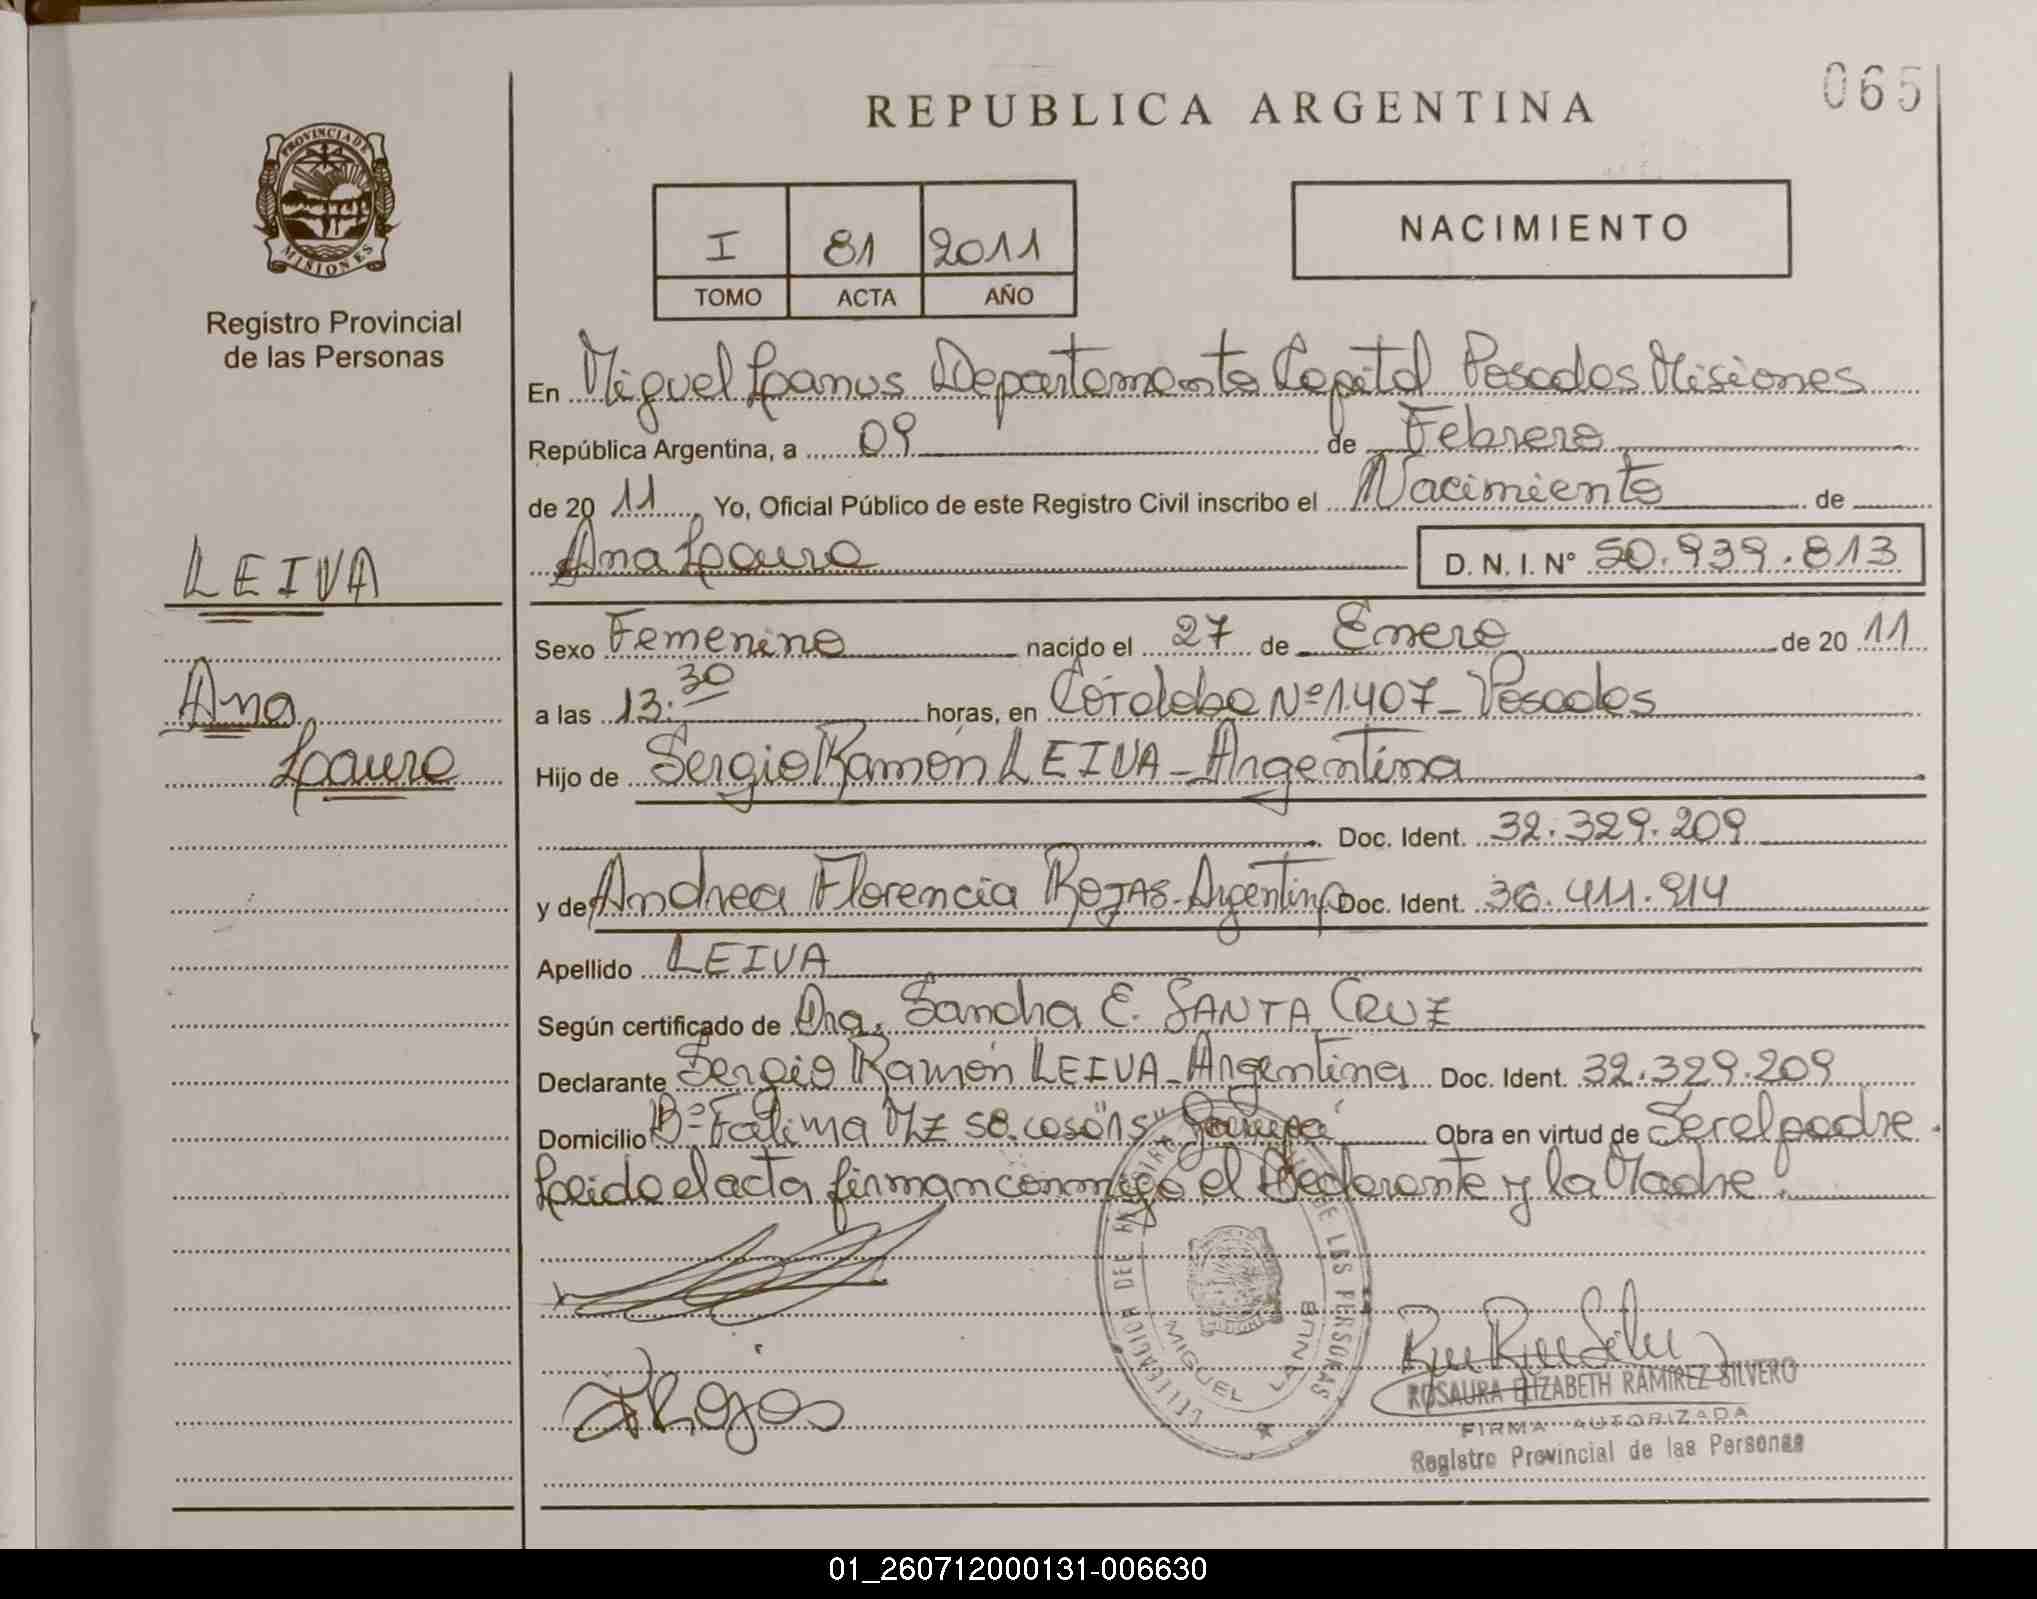 065
REPUBLICA ARGENTINA
PROVINCIA DE
MISIONES
Registro Provincial
de las Personas
NACIMIENTO
I 81 2011
TOMO ACTA AÑO
En Miguel Lanus Departamento Capital Posadas Misiones
República Argentina, a 09 de Febrero
de 20 11 Yo, Oficial Público de este Registro Civil inscribo el Nacimiento de
Ana Laura D. N. I. N° 50.939.813
LEIVA
Ana
Laura
Sexo Femenino nacido el 27 de Enero de 20 11
a las 13:30 horas, en Córdoba Nº 1.407 - Posadas
Hijo de Sergio Ramón LEIVA - Argentina
Doc. Ident. 32.329.209
y de Andrea Florencia ROJAS - Argentina Doc. Ident. 36.411.914
Apellido LEIVA
Según certificado de Dra. Sandra E. SANTA CRUZ
Declarante Sergio Ramón LEIVA - Argentina Doc. Ident. 32.329.209
Domicilio Bº Fatima Mz 58. casa "15" Garupá Obra en virtud de Ser el padre.
Leida el acta firman conmigo el Declarante y la Madre.
DELEGACION DEL REGISTRO DE LAS PERSONAS
MIGUEL LANUS
F Rojas
ROSAURA ELIZABETH RAMIREZ SILVERO
FIRMA AUTORIZADA
Registro Provincial de las Personas
01_260712000131-006630